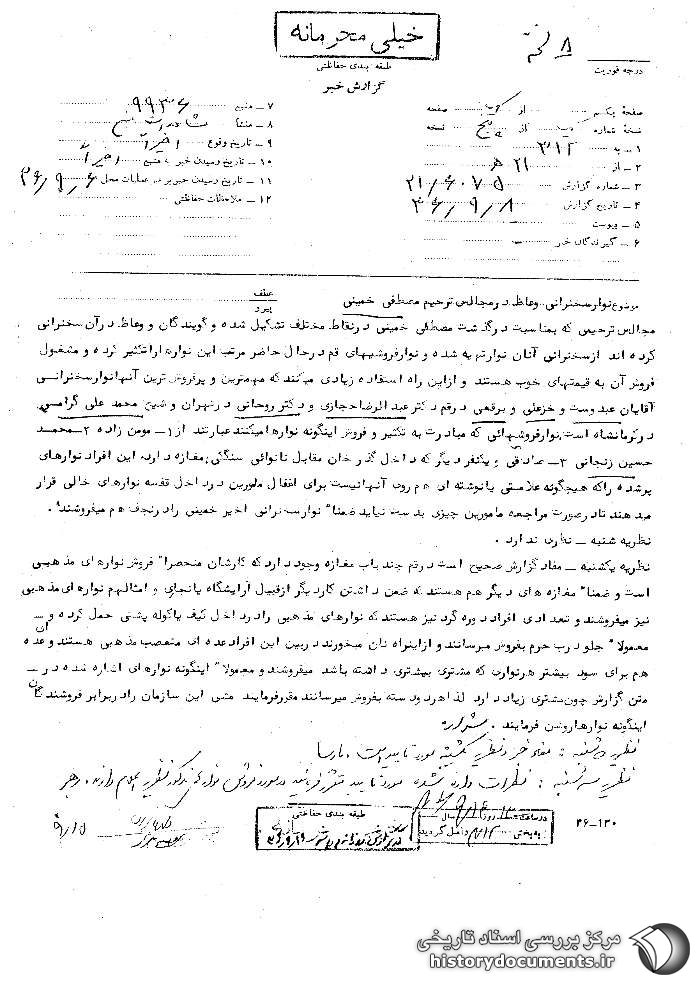 خیلی محرمانه
طبقه بندی حفاظتی
گزارش خبر
درجه فوریت
صفحه یک از یک صفحه
نسخه شماره یک از پنج نسخه
۱ ـ به ۳۱۲
۲ ـ از ۲۱ هـ
۳ ـ شماره گزارش ۲۱/۶۰۷۵
۴ ـ تاریخ گزارش ۳۶/۹/۸
۵ ـ پیوست
۶ ـ گیرندگان خبر
۷ ـ منبع ۹۹۳۶
۸ ـ منشأ
۹ ـ تاریخ وقوع اخیراً
۱۰ ـ تاریخ رسیدن خبر به منبع اخیراً
۱۱ ـ تاریخ رسیدن خبر به عملیات محل ۳۶/۹/۶
۱۲ ـ ملاحظات حفاظتی
موضوع نوار سخنرانی وعاظ در مجالس ترحیم مصطفی خمینی
عطف
پیرو
مجالس ترحیمی که بمناسبت درگذشت مصطفی خمینی در نقاط مختلف تشکیل شده و گویندگان و وعاظ در آن سخنرانی
کرده اند از سخنرانی آنان نوار تهیه شده و نوار فروشیهای قم در حال حاضر مرتب این نوارها را تکثیر کرده و مشغول
فروش آن به قیمتهای خوب هستند و از این راه استفاده زیادی میکنند که مهمترین و پرفروش ترین آنها نوار سخنرانی
آقایان عبدوست و خزعلی و برقعی در قم دکتر عبدالرضا حجازی و دکتر روحانی در تهران و شیخ محمد علی گرامی
در کرمانشاه است. نوار فروشهائی که مبادرت به تکثیر و فروش اینگونه نوارها میکنند عبارتند از ۱ـ مومن زاده ۲ـ محمد
حسین زنجانی ۳ـ صادقی و یکنفر دیگر که داخل گذر خان مقابل نانوائی سنگکی مغازه دارد. این افراد نوارهای
پر شده را که هیچگونه علامتی یا نوشته ای هم روی آنها نیست برای اغفال مامورین در داخل قفسه نوارهای خالی قرار
میدهند تا در صورت مراجعه مامورین چیزی بدست نیاید ضمنا" نوار سخنرانی اخیر خمینی را در نجف هم میفروشند.
نظریه شنبه ـ نظری ندارد.
نظریه یکشنبه ـ مفاد گزارش صحیح است در قم چند باب مغازه وجود دارد که کارشان منحصرا" فروش نوارهای مذهبی
است و ضمنا" مغازه های دیگر هم هستند که ضمن داشتن کار دیگر از قبیل آرایشگاه یا نجاری و امثالهم نوارهای مذهبی
نیز میفروشند و تعدادی افراد دوره گرد نیز هستند که نوارهای مذهبی را در داخل کیف یا کوله پشتی حمل کرده و
معمولا" جلو درب حرم بفروش میرسانند و از اینراه نان میخورند در بین این افراد عده ای متعصب مذهبی هستند و عده ای
هم برای سود بیشتر هر نواری که مشتری بیشتری داشته باشد میفروشند و معمولا" اینگونه نوارهای اشاره شده در
متن گزارش چون مشتری زیاد دارد لذا هر دو دسته بفروش میرسانند مقرر فرمایند مشی این سازمان را در برابر فروشندگان
اینگونه نوارها روشن فرمایند.
نظریه دوشنبه : مفاد خبر و نظریه یکشنبه مورد تایید است. پارسا
نظریه سه شنبه : نظرات داده شده مورد تایید
۳۶ـ۱۳۰
در ساعت روز سال
به بخش ۳۱۲ واصل گردید
طبقه بندی حفاظتی
۹/۱۵
مرکز بررسی اسناد تاریخی
historydocuments.ir